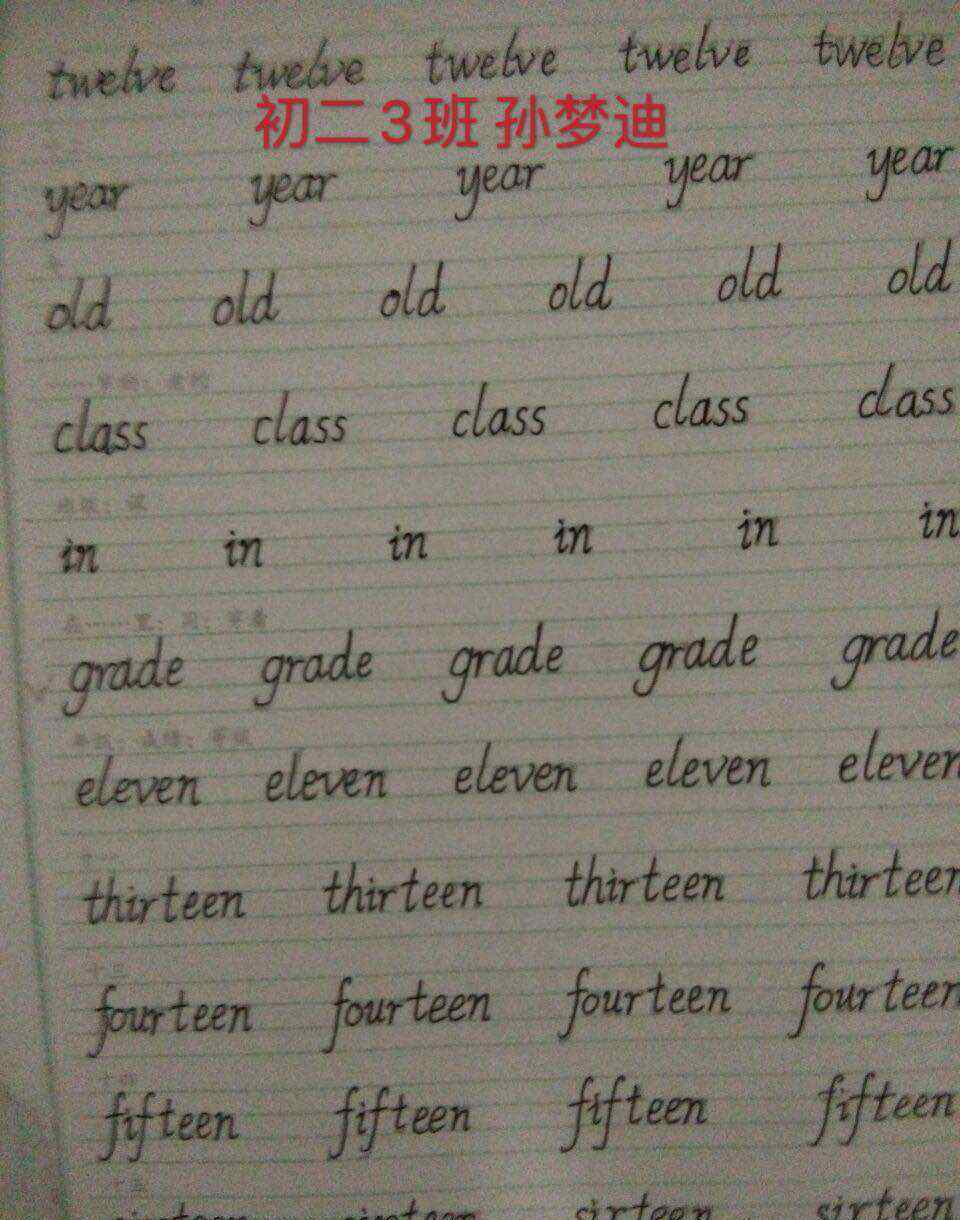 twelve twelve twelve twelve twelve
初二3班 孙梦迪
year year year year year
old old old old old old
class class class class class
in in in in in in
grade grade grade grade grade
eleven eleven eleven eleven eleven
thirteen thirteen thirteen thirteen
fourteen fourteen fourteen fourteen
十四
fifteen fifteen fifteen fifteen
十五